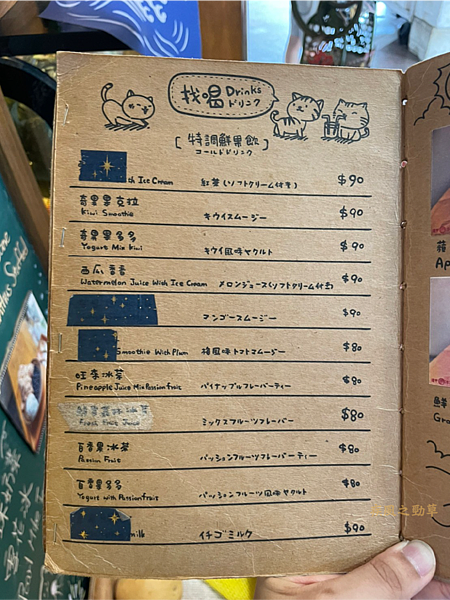 找喝 Drinks
ドリンク
[ 特調鮮果飲 ]
コールドドリンク
th Ice Cream 紅茶(ソフトクリーム付き) $90
奇異果克拉
Kiwi Smoothie キウイスムージー $90
奇異果多多
Yogurt Mix kiwi キウイ風味ヤクルト $90
西瓜雪雪
Watermelon Juice With Ice Cream メロンジュース(ソフトクリーム付き) $90
マンゴースムージー $90
Smoothie With Plum 梅風味トマトスムージー $80
旺來冰茶
Pineapple Juice Mix Passion fruit パイナップルフレーバーティー $80
Fresh Fruit Juice ミックスフルーツフレーバー $80
百香果冰茶
Passion Fruit パッションフルーツフレーバーティー $80
百香果多多
Yogurt with Passionfruit パッションフルーツ風味ヤクルト $80
milk イチゴミルク $90
之勁草
Ap
鮮
Gra